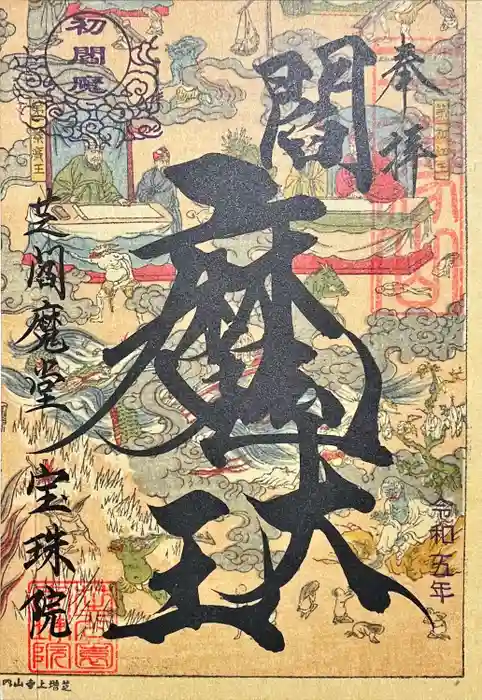 奉拝
閻魔大王
令和五年
初閻魔
芝閻魔堂 宝珠院
芝増上寺山内